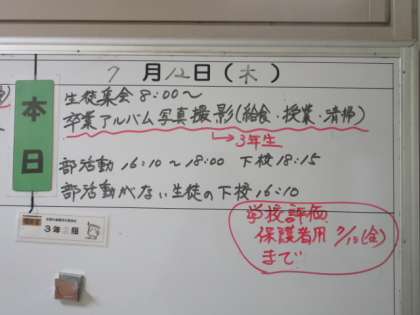 7月12日(木)
本日
生徒集会 8:00〜
卒業アルバム写真撮影(給食・授業・清掃)
→3年生
部活動 16:10〜18:00 下校18:15
部活動がない生徒の下校 16:10
学校評価
保護者用 7/13(金)
まで
3年 組